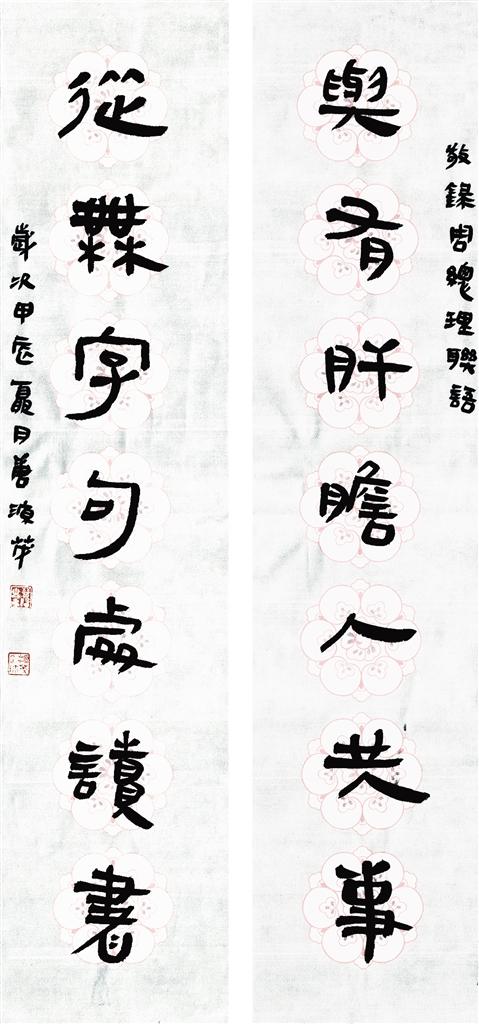 敬錄周總理聯語
與有肝膽人共事
從無字句處讀書
歲次甲辰夏月